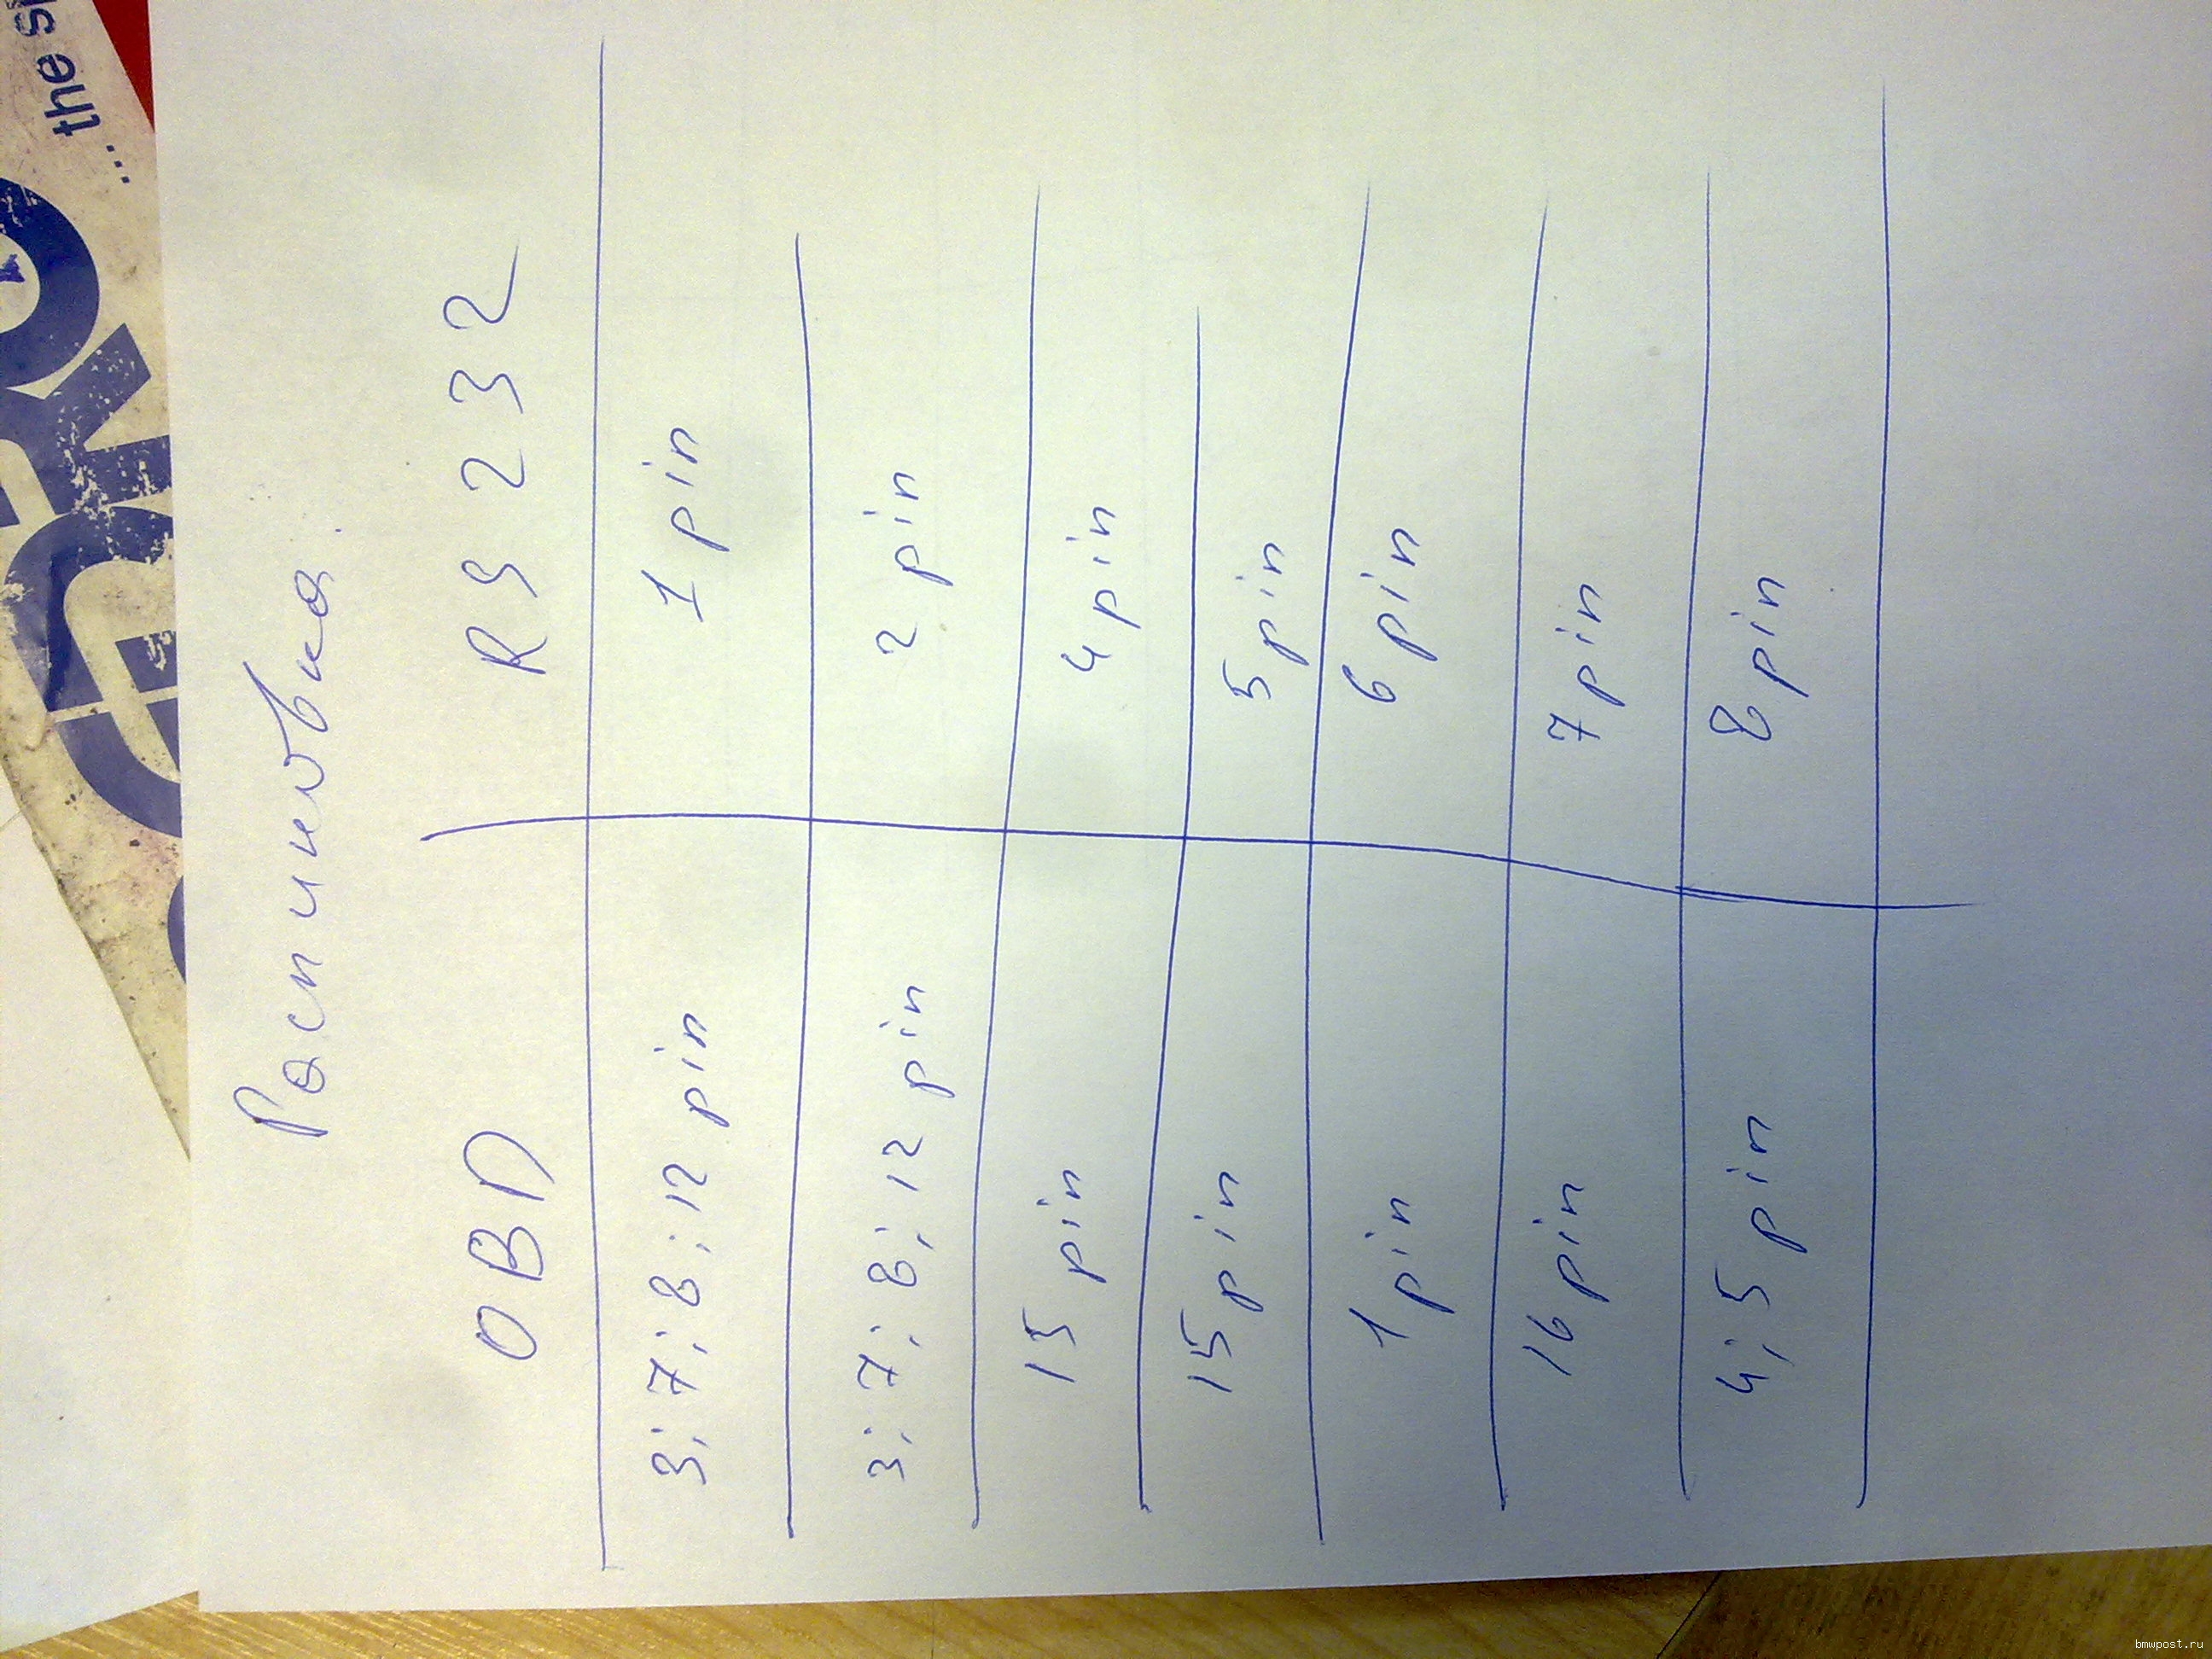 Распиновка.
OBD RS 232
3; 7; 8; 12 pin 1 pin
3; 7; 8; 12 pin 2 pin
15 pin 4 pin
15 pin 5 pin
1 pin 6 pin
16 pin 7 pin
4; 5 pin 8 pin
... the
bmwpost.ru